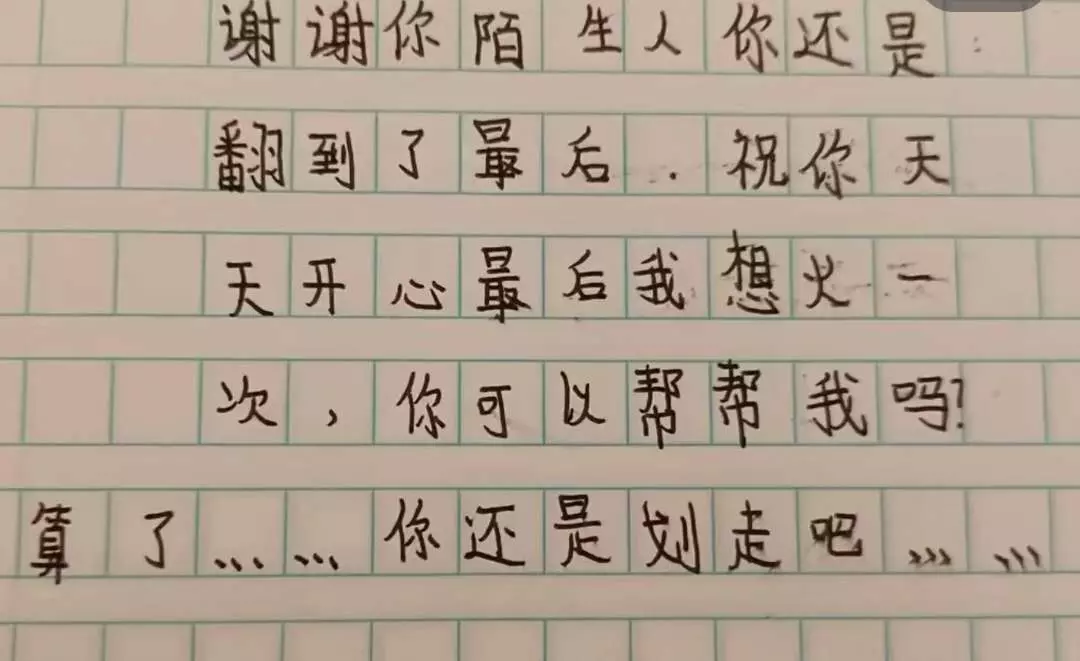 谢谢你陌生人你还是
翻到了最后.祝你天
天开心最后我想火一
次,你可以帮帮我吗?
算了……你还是划走吧……